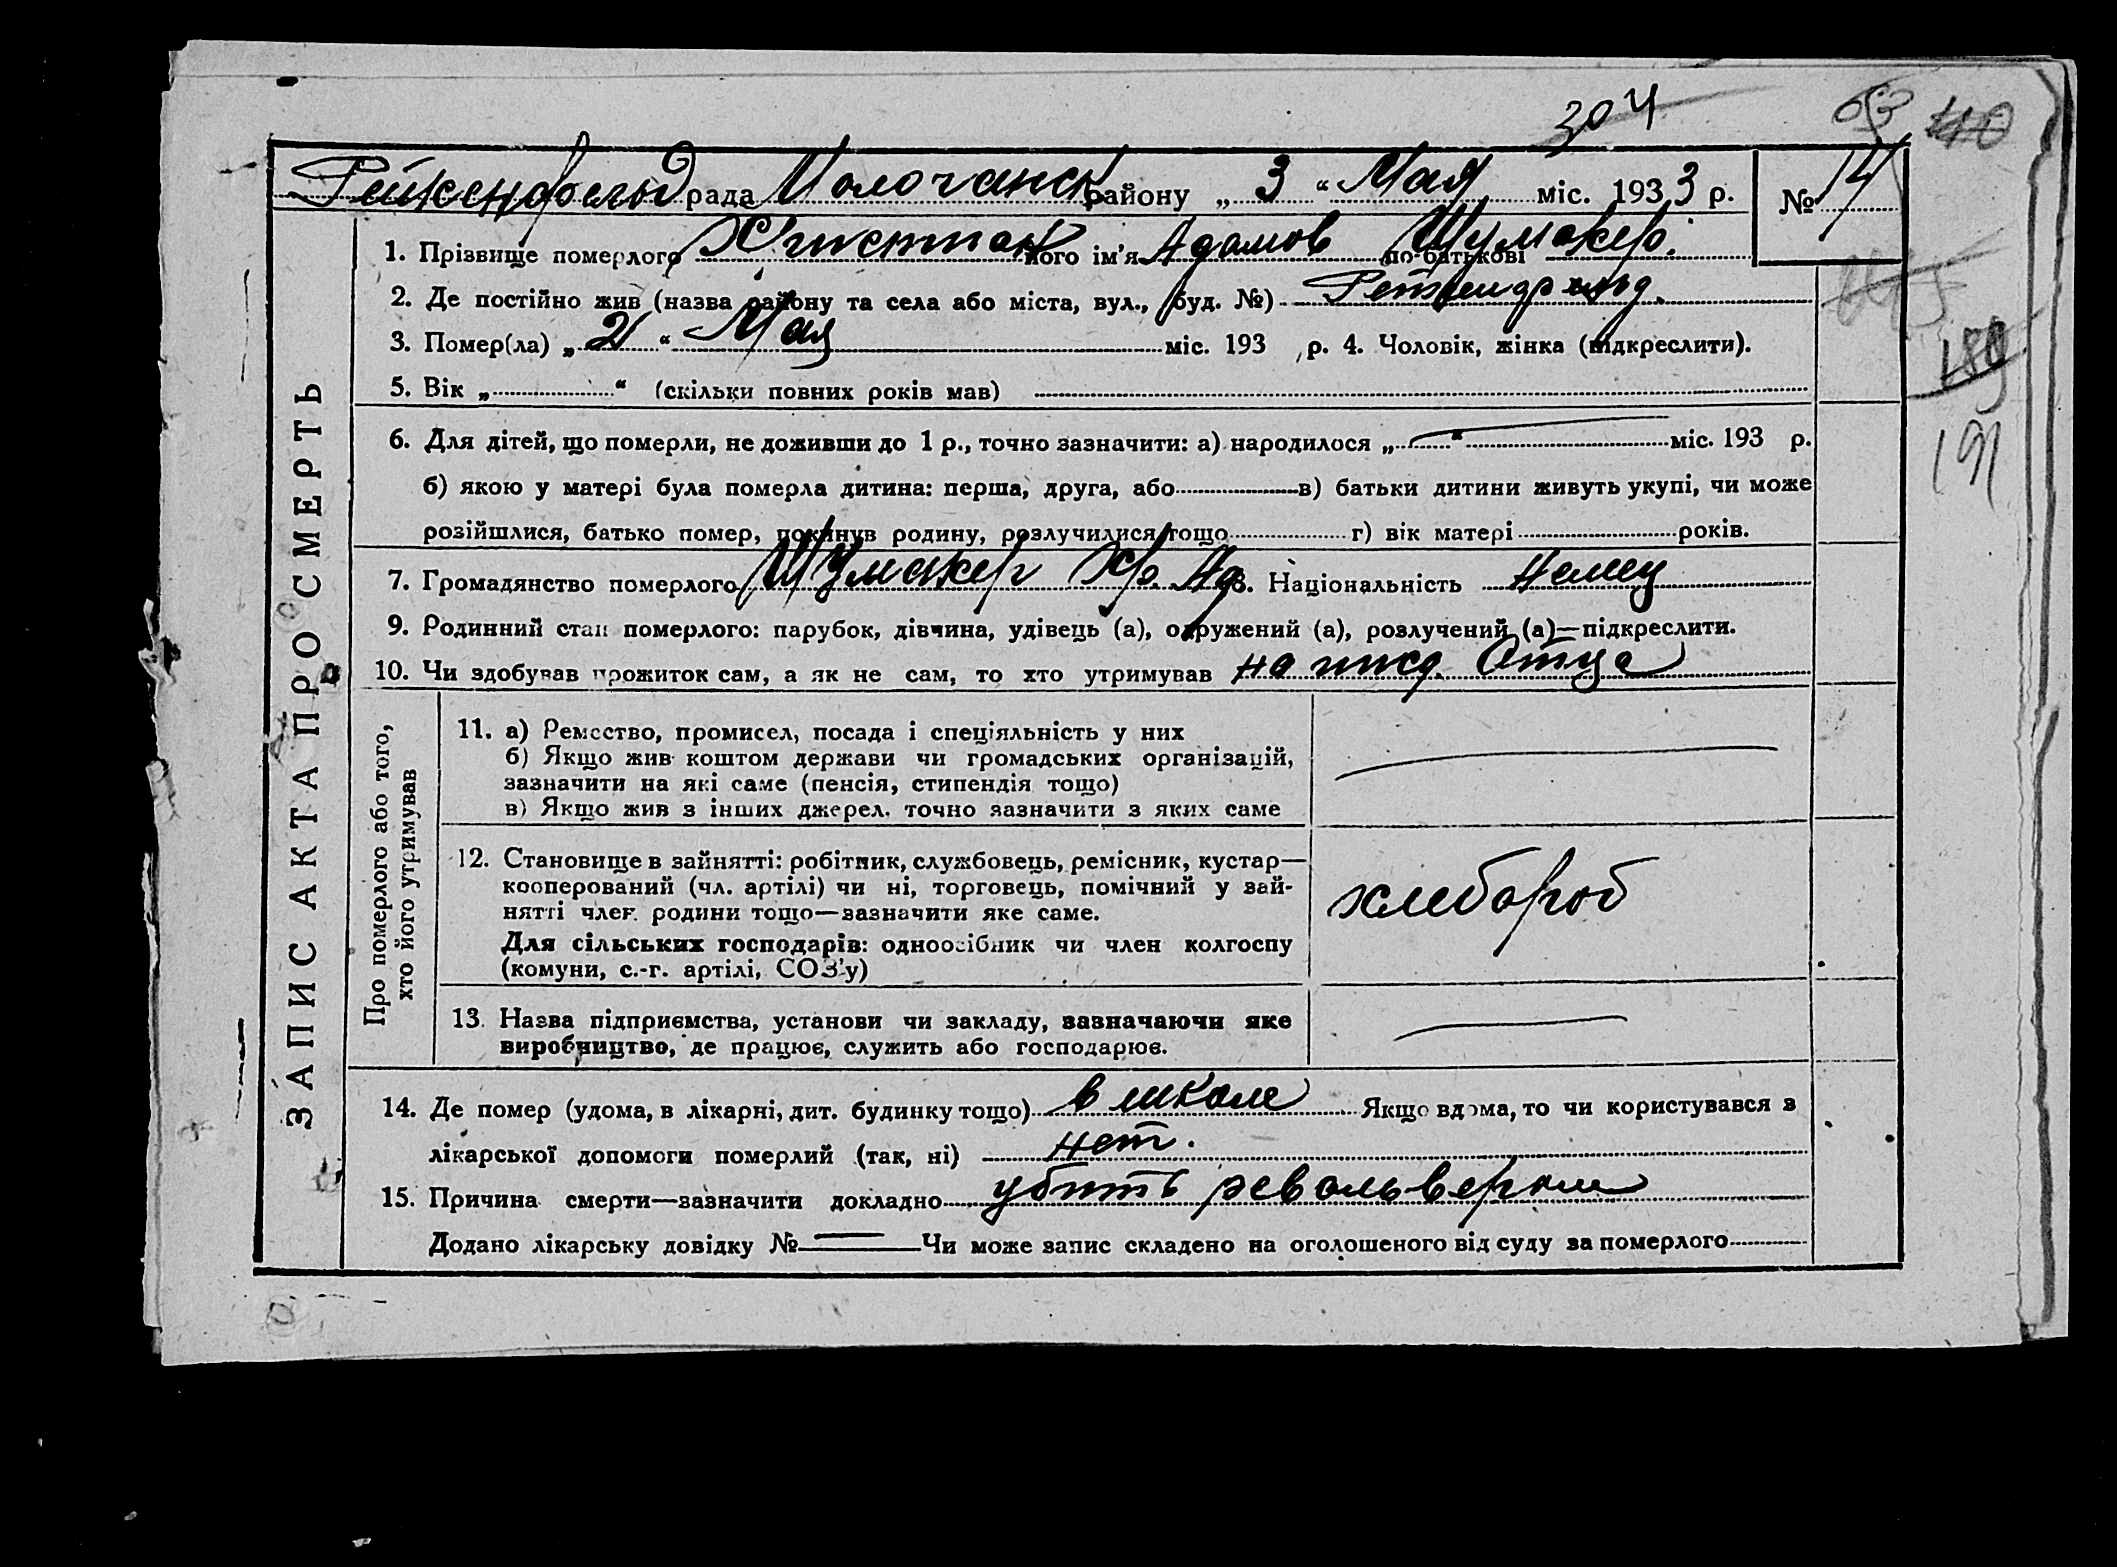 304 63 40
Рейхенфельд рада Молочанск району „ 3 “ Мая міс. 1933 р. № 14
1. Прізвище померлого Христиан його ім’я Адамов по-батькові Шумахер.
2. Де постійно жив (назва району та села або міста, вул., буд. №)
3. Помер(ла) „ 2 “ Мая міс. 193 р. 4. Чоловік, жінка (підкреслити).
5. Вік „ “ (скільки повних років мав)
189
6. Для дітей, що померли, не доживши до 1 р., точно зазначити: а) народилося „ — “ міс. 193 р.
191
б) якою у матері була померла дитина: перша, друга, або в) батьки дитини живуть укупі, чи може
розійшлися, батько помер, покинув родину, розлучилися тощо г) вік матері років.
7. Громадянство померлого Шумахер Хр. Ад 8. Національність Немец
9. Родинний стан померлого: парубок, дівчина, удівець (а), одружений (а), розлучений (а)—підкреслити.
10. Чи здобував прожиток сам, а як не сам, то хто утримував на ижд. Отца
ЗАПИС АКТА ПРО СМЕРТЬ
Про померлого або того,
хто його утримував
11. а) Ремество, промисел, посада і спеціяльність у них
б) Якщо жив коштом держави чи громадських організацій,
зазначити на які саме (пенсія, стипендія тощо)
в) Якщо жив з інших джерел. точно зазначити з яких саме
12. Становище в зайнятті: робітник, службовець, ремісник, кустар—
кооперований (чл. артілі) чи ні, торговець, помічний у зай-
нятті член родини тощо—зазначити яке саме.
хлебороб
Для сільських господарів: одноосібник чи член колгоспу
(комуни, с.-г. артілі, СОЗ’у)
13. Назва підприємства, установи чи закладу, зазначаючи яке
виробництво, де працює, служить або господарює.
14. Де помер (удома, в лікарні, дит. будинку тощо) в школе Якщо вдома, то чи користувався з
лікарської допомоги померлий (так, ні) нет.
15. Причина смерти—зазначити докладно убить револьвером
Додано лікарську довідку № — Чи може запис складено на оголошеного від суду за померлого